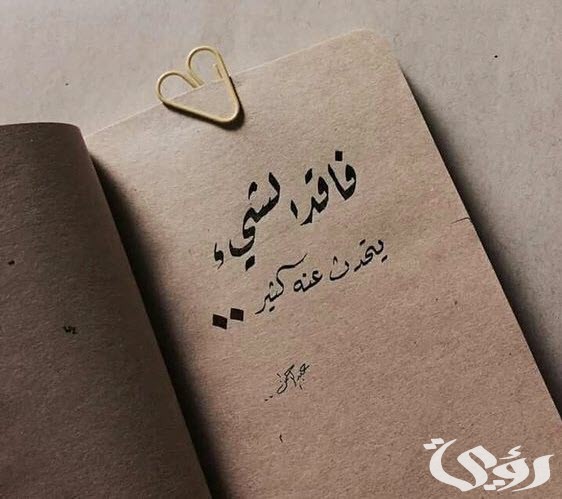 فاقد الشيء
يتحدث عنه كثير ..
رؤية